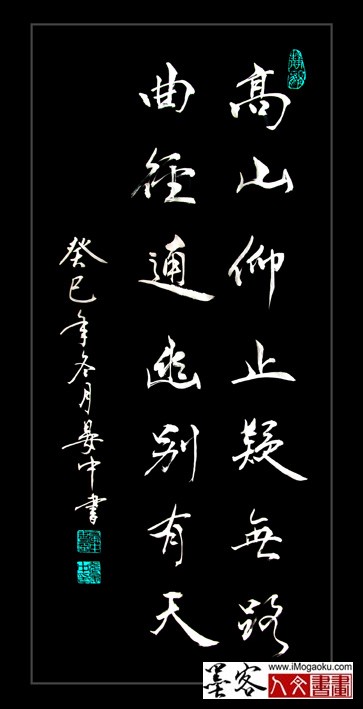 高山仰止疑無路
曲徑通幽別有天
癸巳年冬月晏中書
墨客
www.iMogaoku.com
人文書畫